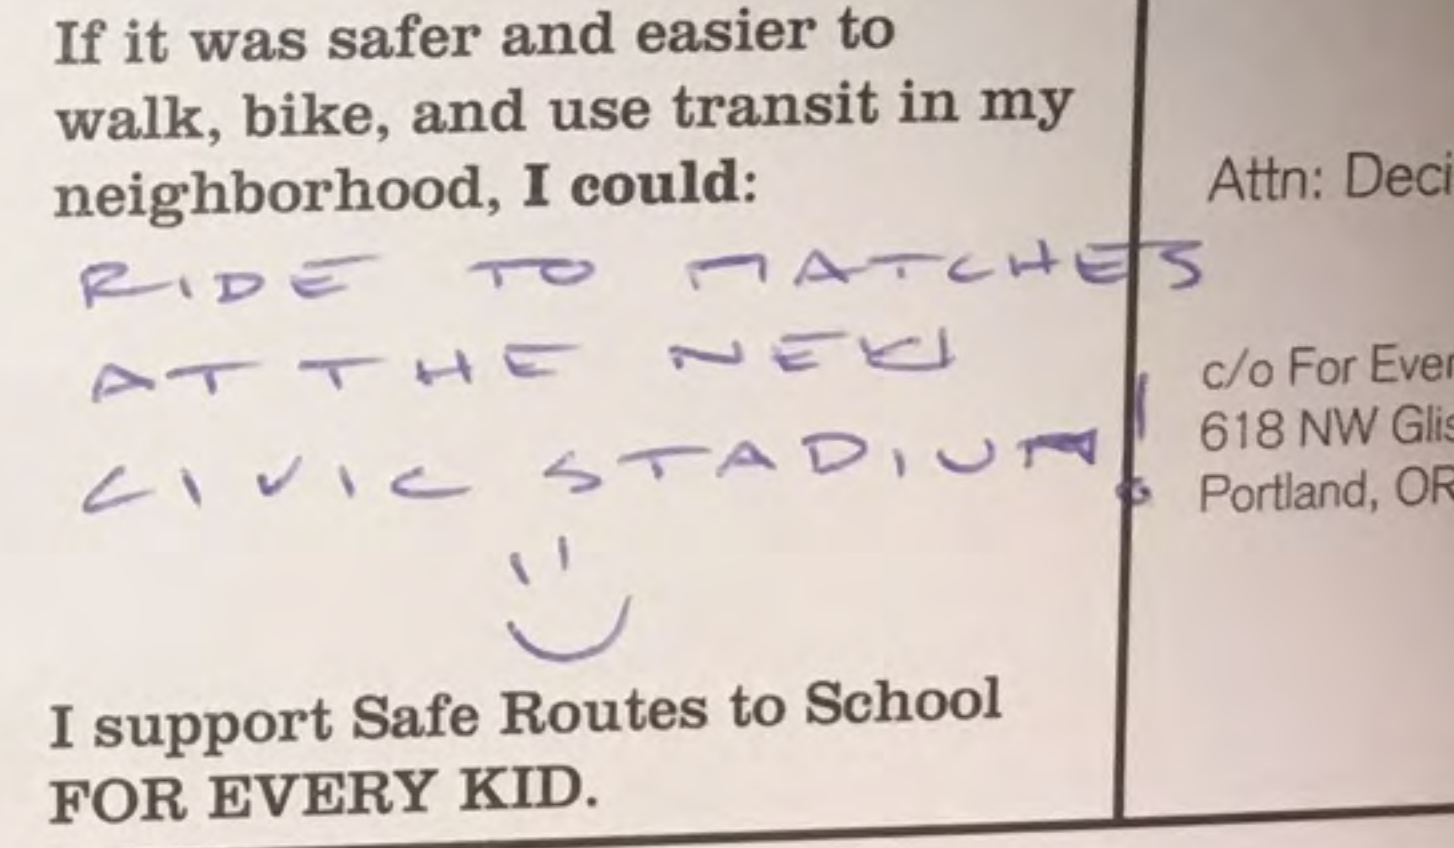 If it was safer and easier to
walk, bike, and use transit in my
neighborhood, I could:
RIDE TO MATCHES
AT THE NEW
CIVIC STADIUM!
I support Safe Routes to School
FOR EVERY KID.
Attn: Deci
c/o For Ever
618 NW Glis
Portland, OR